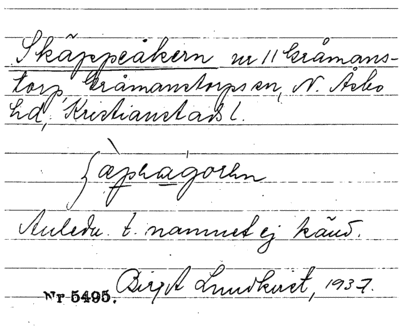 Skäppeåkern nr 11 Gråmans-
torp, Gråmanstorps sn, N. Åsbo
hd, Kristianstads l.
Anledn. t. namnet ej känd.
Birgit Lundkvist, 1937.
Nr 5495.